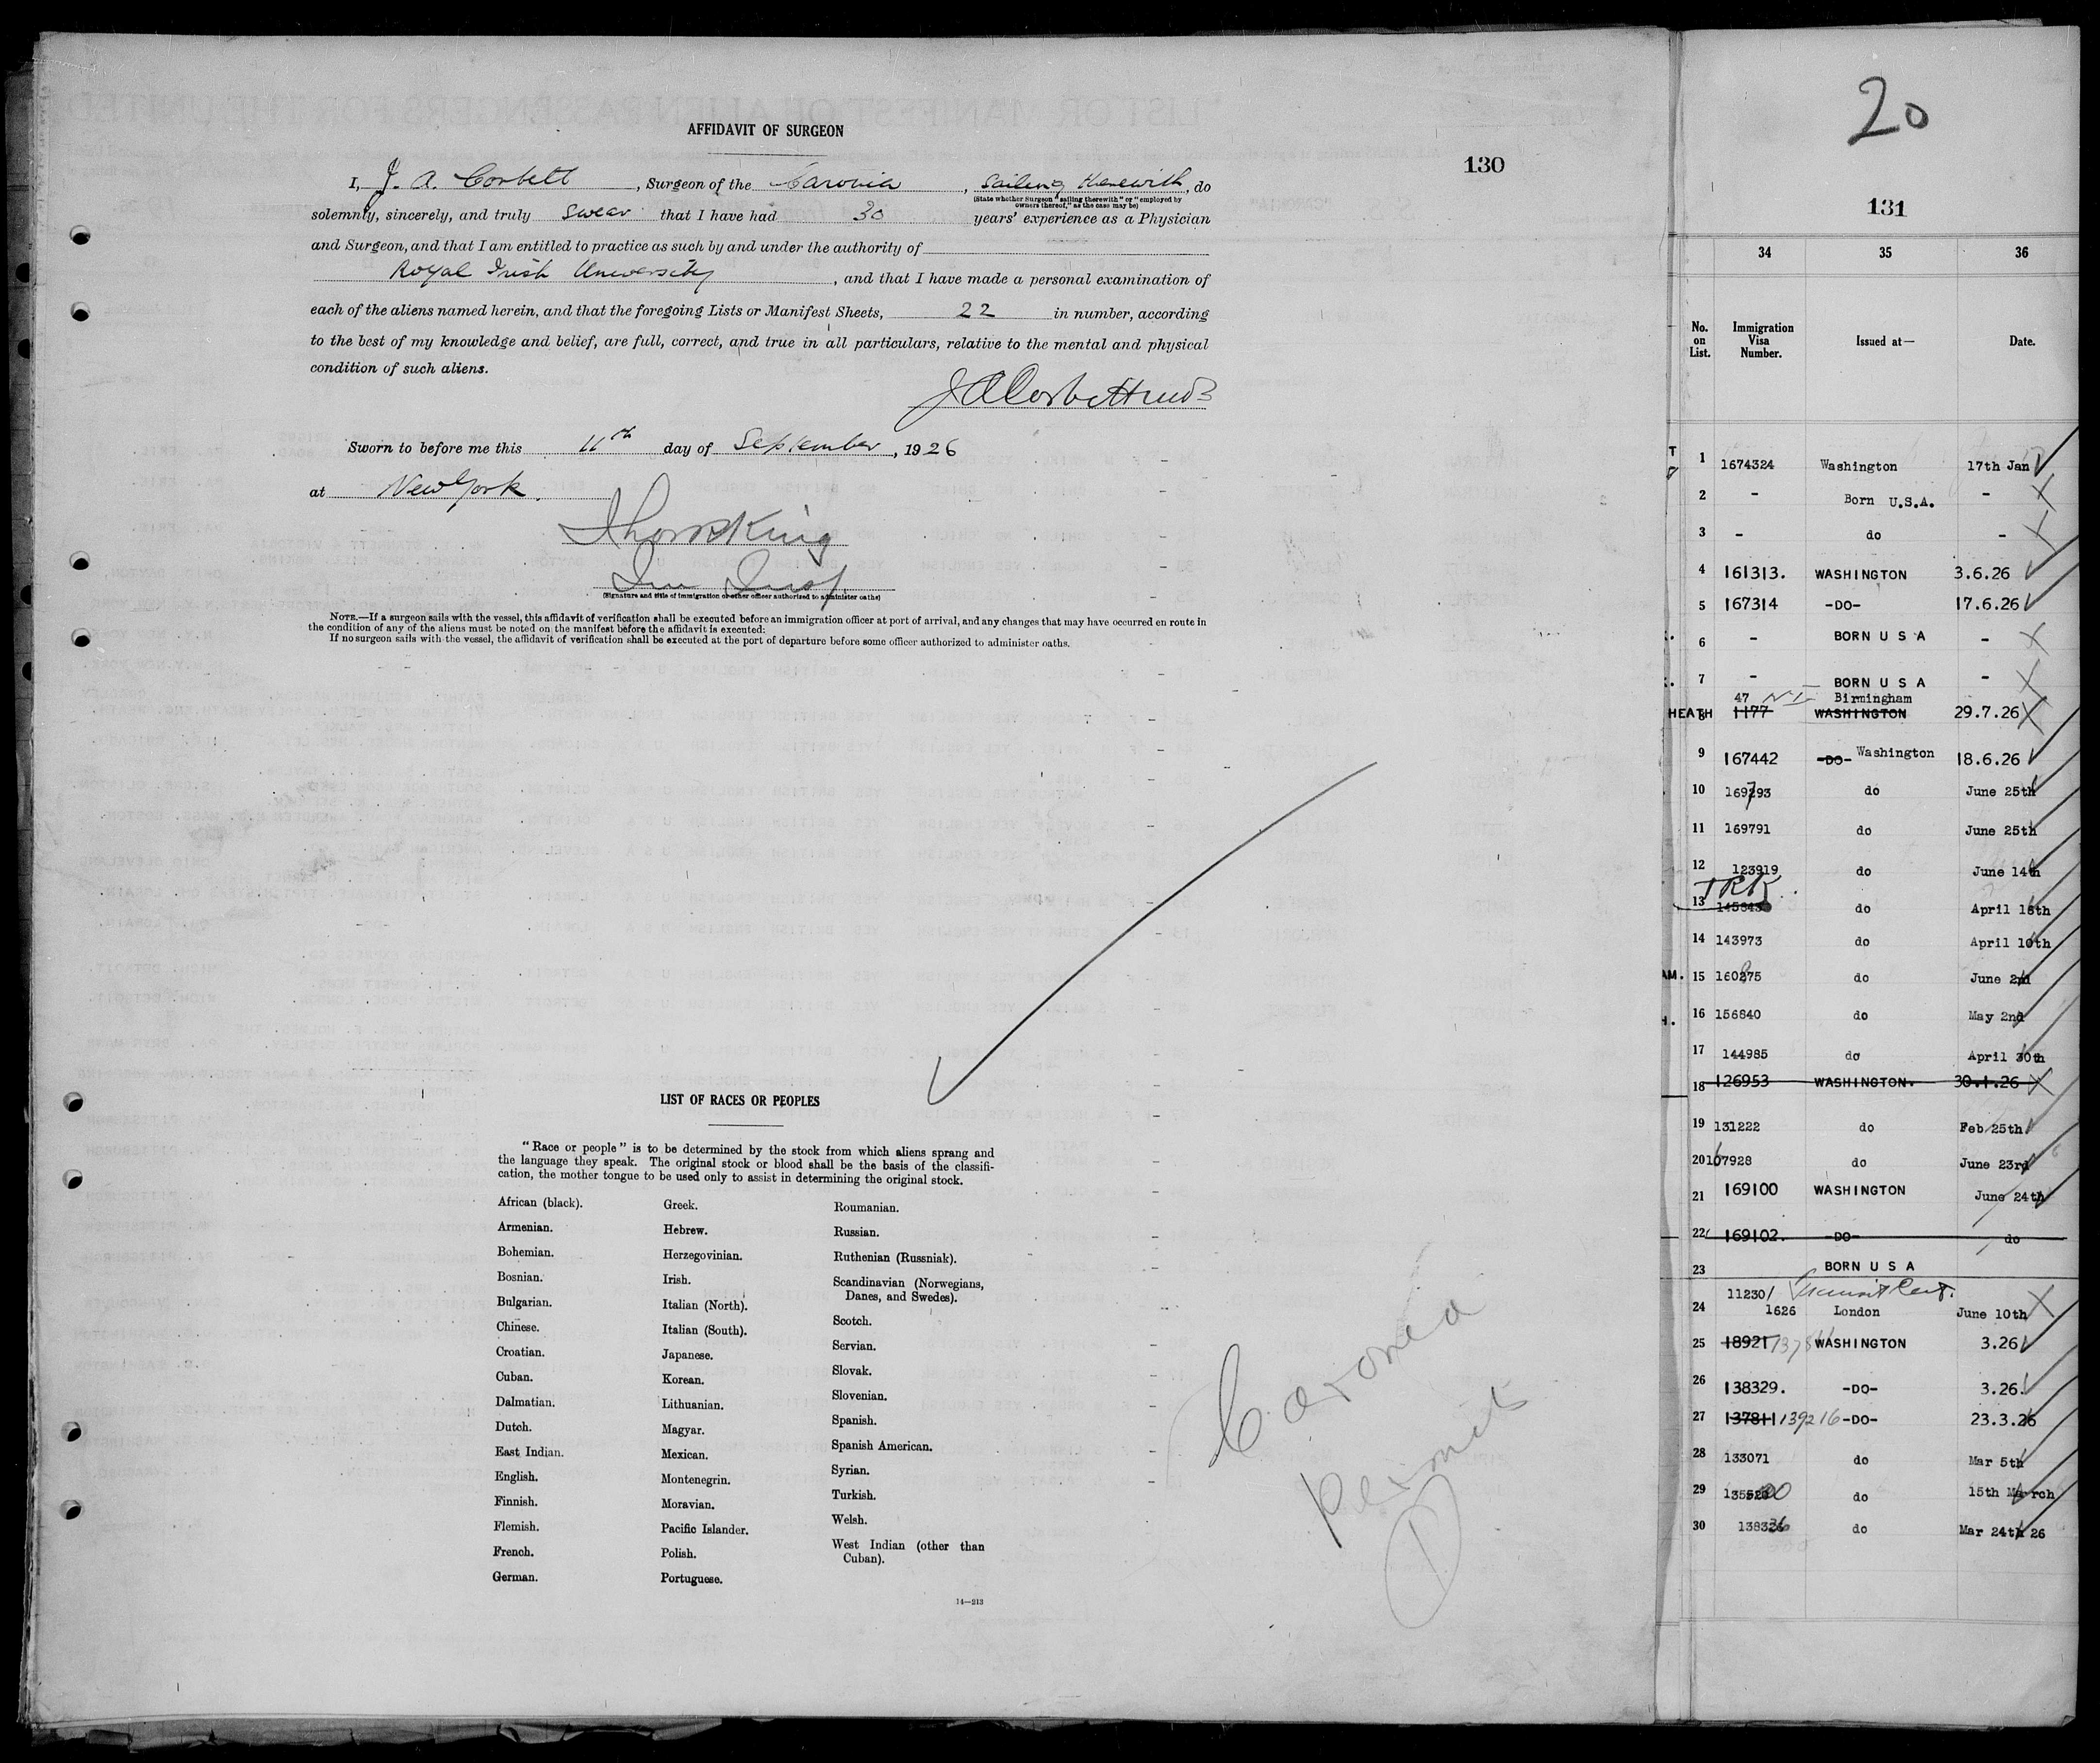 AFFIDAVIT OF SURGEON
130
I, J. A. Corbett, Surgeon of the Caronia, Sailing therewith, do
(State whether Surgeon "sailing therewith" or "employed by
owners thereof," as the case may be)
solemnly, sincerely, and truly swear that I have had 30 years' experience as a Physician
and Surgeon, and that I am entitled to practice as such by and under the authority of
Royal Irish University, and that I have made a personal examination of
each of the aliens named herein, and that the foregoing Lists or Manifest Sheets, 22 in number, according
to the best of my knowledge and belief, are full, correct, and true in all particulars, relative to the mental and physical
condition of such aliens.
J A Corbett
Sworn to before me this 11th day of September, 1926
at New York.
King
Imm Insp
(Signature and title of immigration or other officer authorized to administer oaths)
NOTE.—If a surgeon sails with the vessel, this affidavit of verification shall be executed before an immigration officer at port of arrival, and any changes that may have occurred en route in
the condition of any of the aliens must be noted on the manifest before the affidavit is executed:
If no surgeon sails with the vessel, the affidavit of verification shall be executed at the port of departure before some officer authorized to administer oaths.
LIST OF RACES OR PEOPLES
"Race or people" is to be determined by the stock from which aliens sprang and
the language they speak. The original stock or blood shall be the basis of the classifi-
cation, the mother tongue to be used only to assist in determining the original stock.
African (black).
Armenian.
Bohemian.
Bosnian.
Bulgarian.
Chinese.
Croatian.
Cuban.
Dalmatian.
Dutch.
East Indian.
English.
Finnish.
Flemish.
French.
German.
Greek.
Hebrew.
Herzegovinian.
Irish.
Italian (North).
Italian (South).
Japanese.
Korean.
Lithuanian.
Magyar.
Mexican.
Montenegrin.
Moravian.
Pacific Islander.
Polish.
Portuguese.
Roumanian.
Russian.
Ruthenian (Russniak).
Scandinavian (Norwegians,
Danes, and Swedes).
Scotch.
Servian.
Slovak.
Slovenian.
Spanish.
Spanish American.
Syrian.
Turkish.
Welsh.
West Indian (other than
Cuban).
14—213
Caronia
Permits
20
131
34 35 36
No. on List. Immigration Visa Number. Issued at— Date.
1 1674324 Washington 17th Jan
2 - Born U.S.A. -
3 - do -
4 161313. WASHINGTON 3.6.26
5 167314 -DO- 17.6.26
6 - BORN U S A -
7 - BORN U S A -
47 Birmingham
HEATH 8 1177 WASHINGTON 29.7.26
9 167442 -DO- Washington 18.6.26
10 169793 do June 25th
11 169791 do June 25th
12 123919 do June 14th
13 do April 15th
14 143973 do April 10th
AM. 15 160275 do June 2nd
16 156840 do May 2nd
17 144985 do April 30th
18 126953 WASHINGTON. 30.1.26
19 131222 do Feb 25th
20 167928 do June 23rd
21 169100 WASHINGTON June 24th
22 169102. -DO- do
23 BORN U S A
11230/ Transit Cert.
24 1626 London June 10th
25 18921 WASHINGTON 3.26
26 138329. -DO- 3.26.
27 137811 139216 -DO- 23.3.26
28 133071 do Mar 5th
29 do 15th March
30 do Mar 24th 26